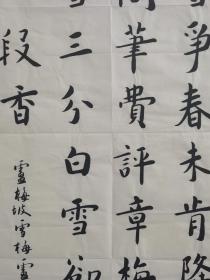 雪爭春未肯降
筆費評章梅
雪三分白雪卻
段香
盧梅坡雪梅